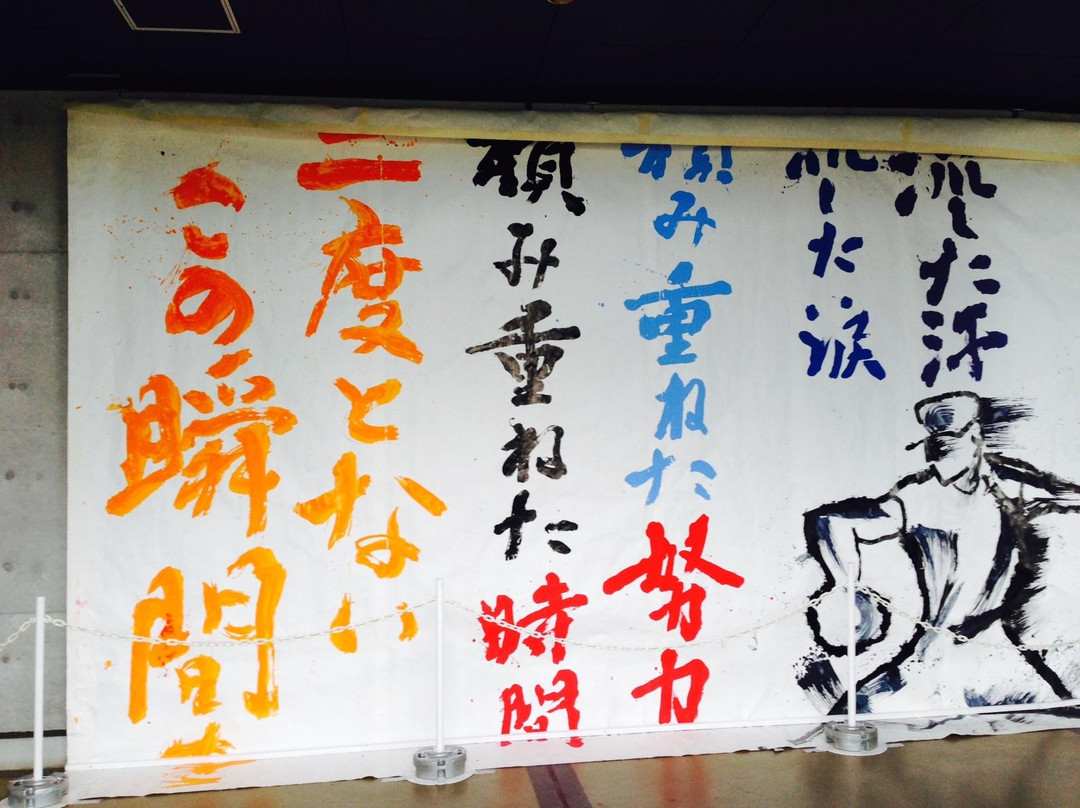 流した汗
流した涙
積み重ねた努力
積み重ねた時間
二度とない
この瞬間